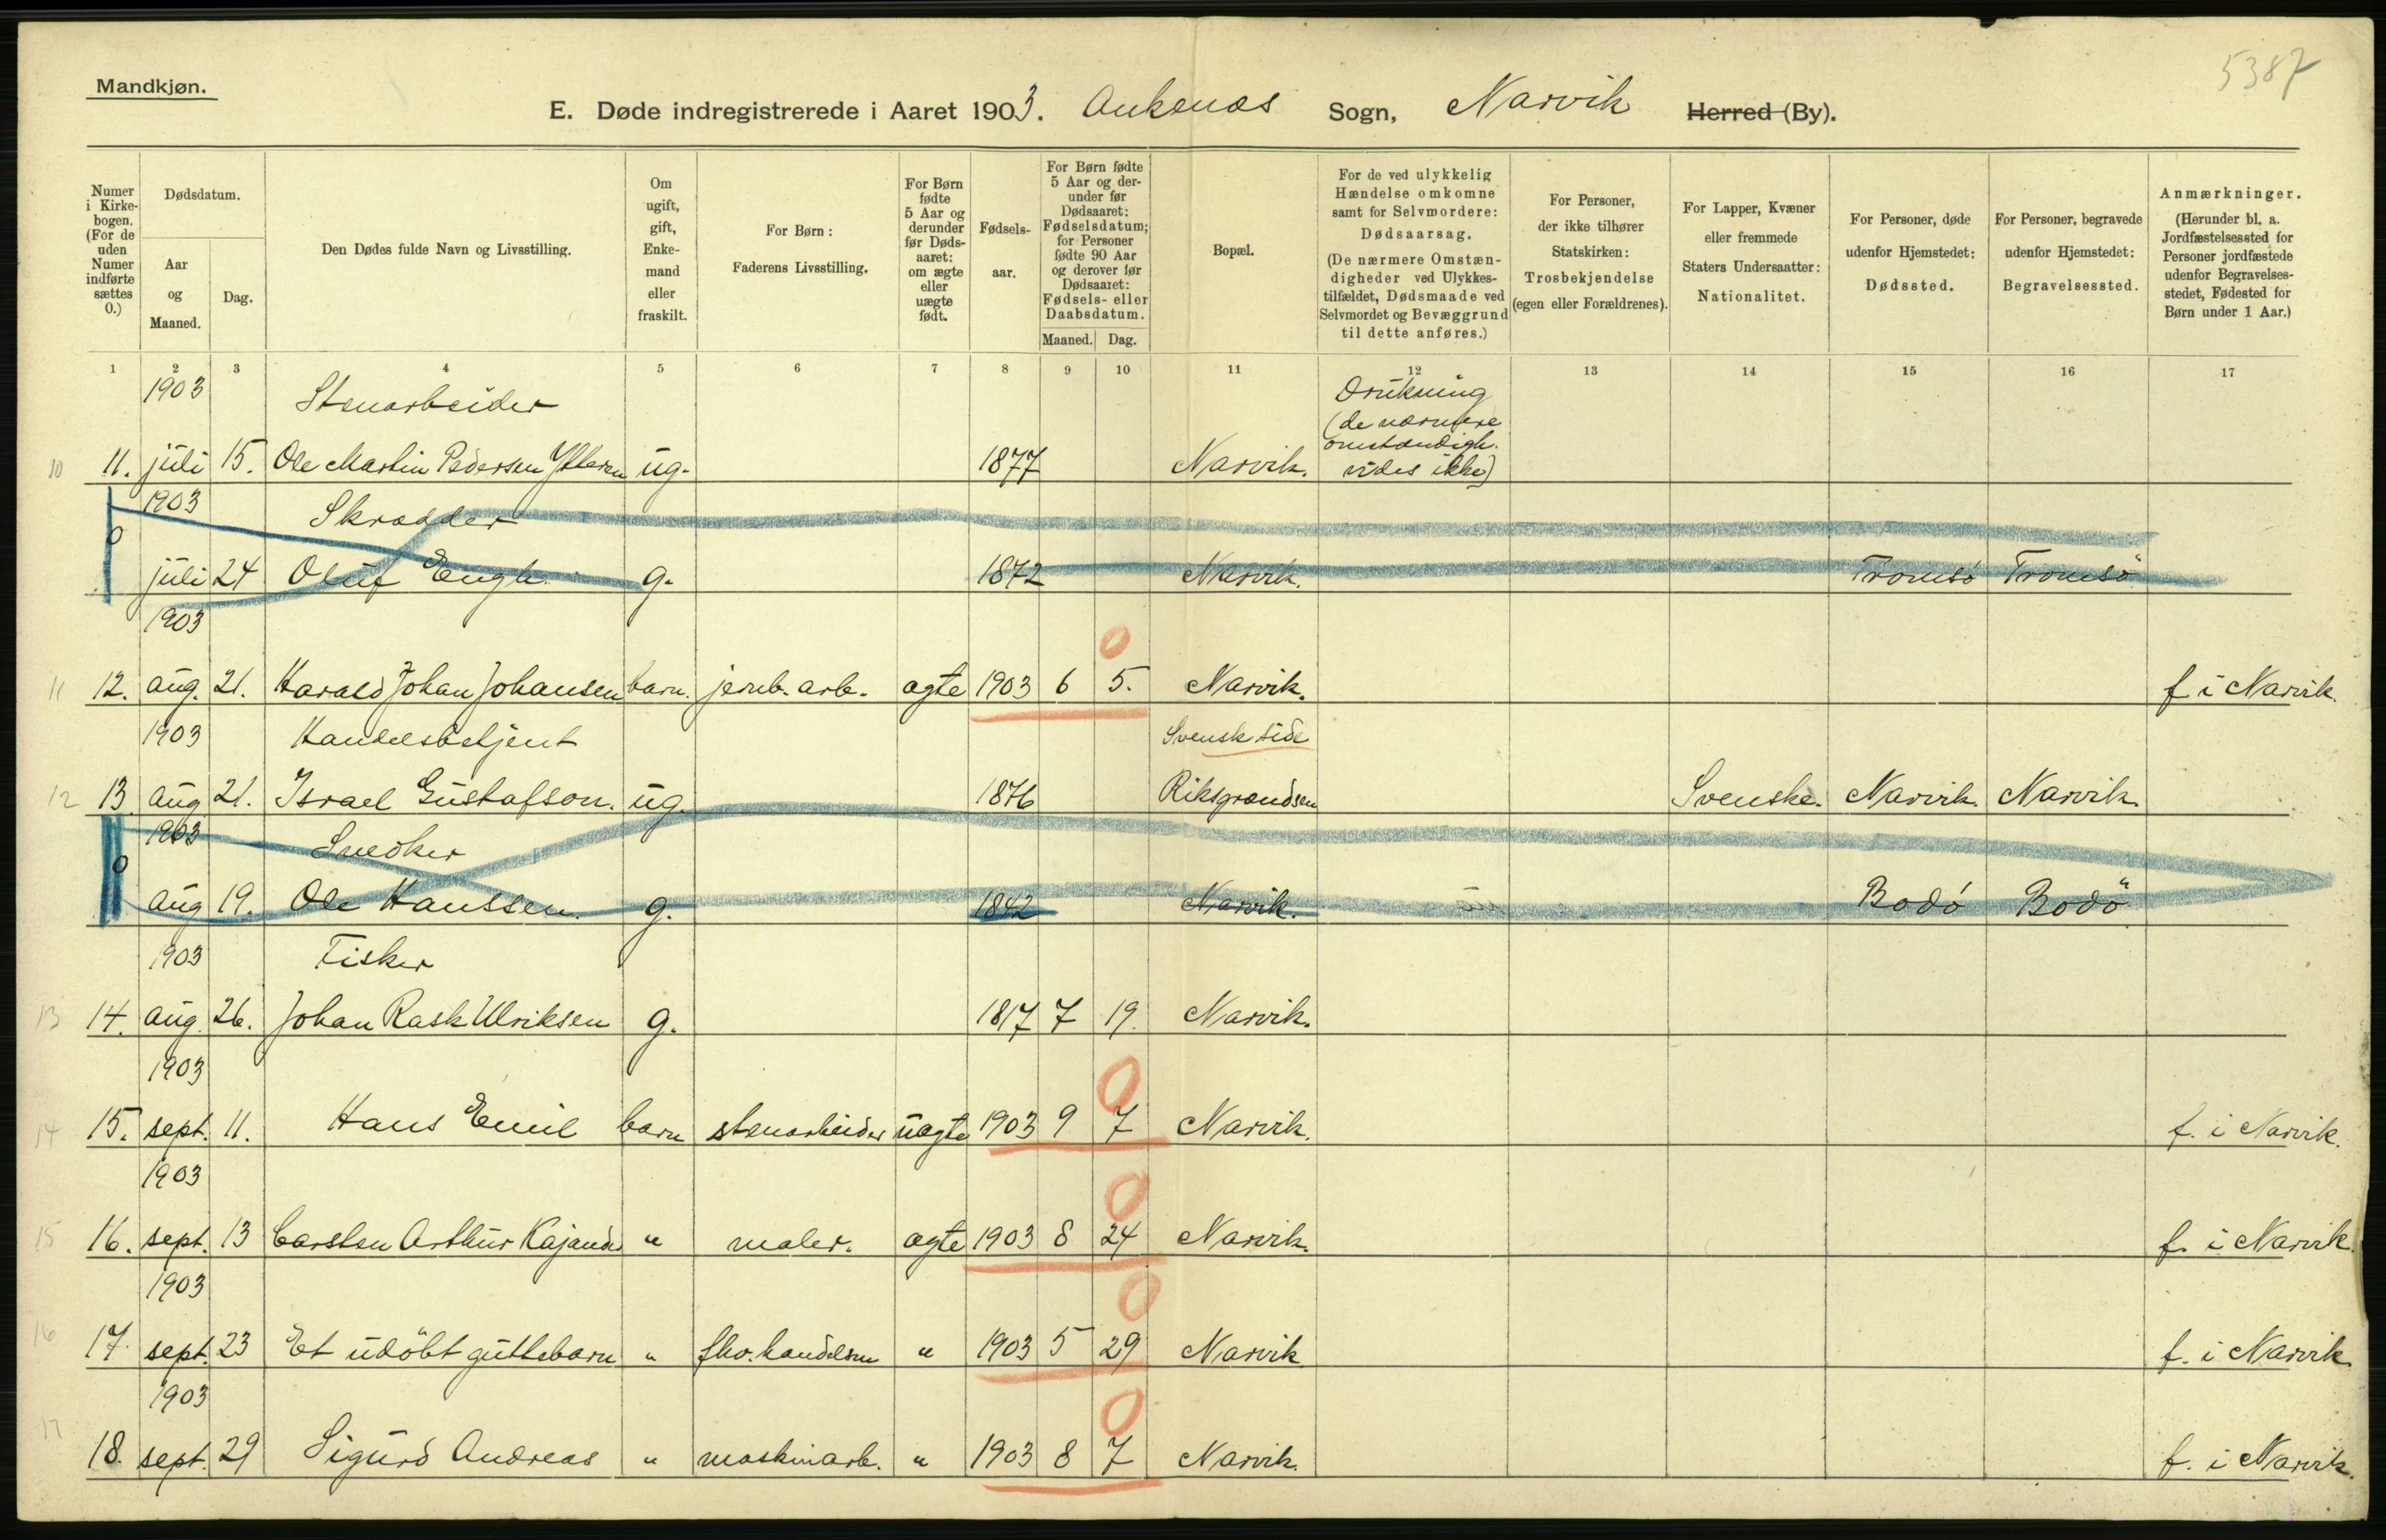 5387
Mandkjøn.
E. Døde indregistrerede i Aaret 1903. Ankenæs Sogn, Narvik Herred (By).
Numer i Kirkebogen. (For de uden Numer indførte sættes 0.)
Dødsdatum.
Aar og Maaned.
Dag.
Den Dødes fulde Navn og Livsstilling.
Om ugift, gift, Enkemand eller fraskilt.
For Børn: Faderens Livsstilling.
For Børn fødte 5 Aar og derunder før Dødsaaret: om ægte eller uægte født.
Fødselsaar.
For Børn fødte 5 Aar og derunder før Dødsaaret: Fødselsdatum; for Personer fødte 90 Aar og derover før Dødsaaret: Fødsels- eller Daabsdatum.
Maaned. Dag.
Bopæl.
For de ved ulykkelig Hændelse omkomne samt for Selvmordere: Dødsaarsag. (De nærmere Omstændigheder ved Ulykkestilfældet, Dødsmaade ved Selvmordet og Bevæggrund til dette anføres.)
For Personer, der ikke tilhører Statskirken: Trosbekjendelse (egen eller Forældrenes).
For Lapper, Kvæner eller fremmede Staters Undersaatter: Nationalitet.
For Personer, døde udenfor Hjemstedet: Dødssted.
For Personer, begravede udenfor Hjemstedet: Begravelsessted.
Anmærkninger. (Herunder bl. a. Jordfæstelsessted for Personer jordfæstede udenfor Begravelsesstedet, Fødested for Børn under 1 Aar.)
1 2 3 4 5 6 7 8 9 10 11 12 13 14 15 16 17
1903 Stenarbeider Drukning
(de nærmere
omstændigh.
10 11. juli 15. Ole Martin Pedersen ug. 1877 Narvik. vides ikke)
1903 Skrædder
0 juli 24 Oluf Engh. g. 1872 Narvik. Tromsö Tromsö
1903 0
11 12. aug. 21. Harald Johan Johansen barn. jernb. arb. ægte 1903 6 5. Narvik. f. i Narvik.
1903 Handelsbetjent Svensk side
12 13. aug 21. Israel Gustafson. ug. 1876 Riksgrændsen Svenske. Narvik. Narvik.
1903 Snedker
0 aug 19. Ole Hanssen. g. 1842 Narvik. Bodö Bodö
1903 Fisker
13 14. aug. 26. Johan Rask Ulriksen g. 1817 7 19. Narvik.
1903 0
14 15. sept. 11. Hans Emil barn stenarbeider uægte 1903 9 7 Narvik. f. i Narvik.
1903 0
15 16. sept. 13 Carsten Arthur Kajander " maler. ægte 1903 8 24 Narvik. f. i Narvik.
1903 0
16 17. sept. 23 Et udöbt guttebarn " fhv. handelsm " 1903 5 29 Narvik f. i Narvik.
1903 0
17 18. sept. 29 Sigurd Andreas " maskinarb. " 1903 8 7 Narvik. f. i Narvik.